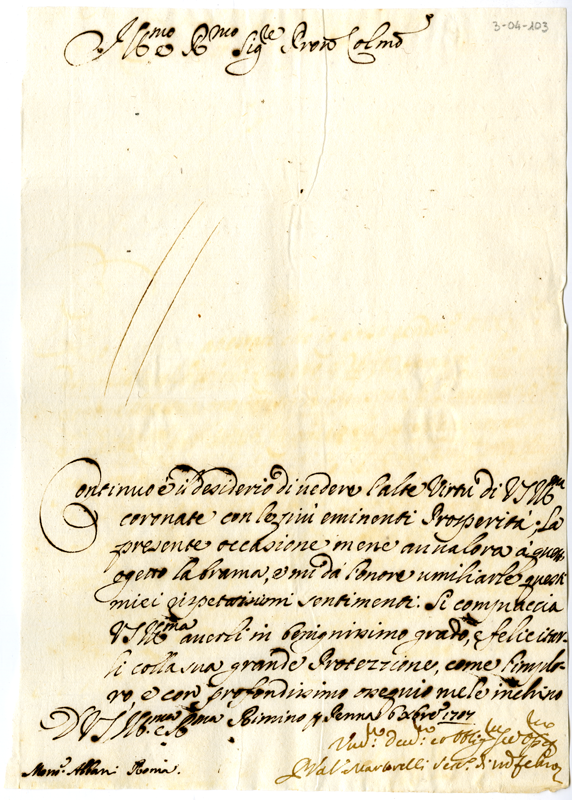 3-04-103
Ill.mo e R.mo Sig.re Pron Colmo
Continuo è il desiderio di uedere l'alte Virtù di VS Ill.ma
coronate con le più eminenti Prosperità; La
presente occasione me ne auualora à quest'
oggetto la brama, e mi dà l'onore umiliarle questi
miei rispettosissimi sentimenti. Si compiaccia
VS Ill.ma auerli in benignissimo grado, e felicitar
li colla sua grande Protezzione, come l'implo
ro, e con profondissimo ossequio me le inchino
D VS Ill.ma e R.ma Rimino p Penna 6 Xbre 1707
Mons.r Albani Roma.
Martorelli